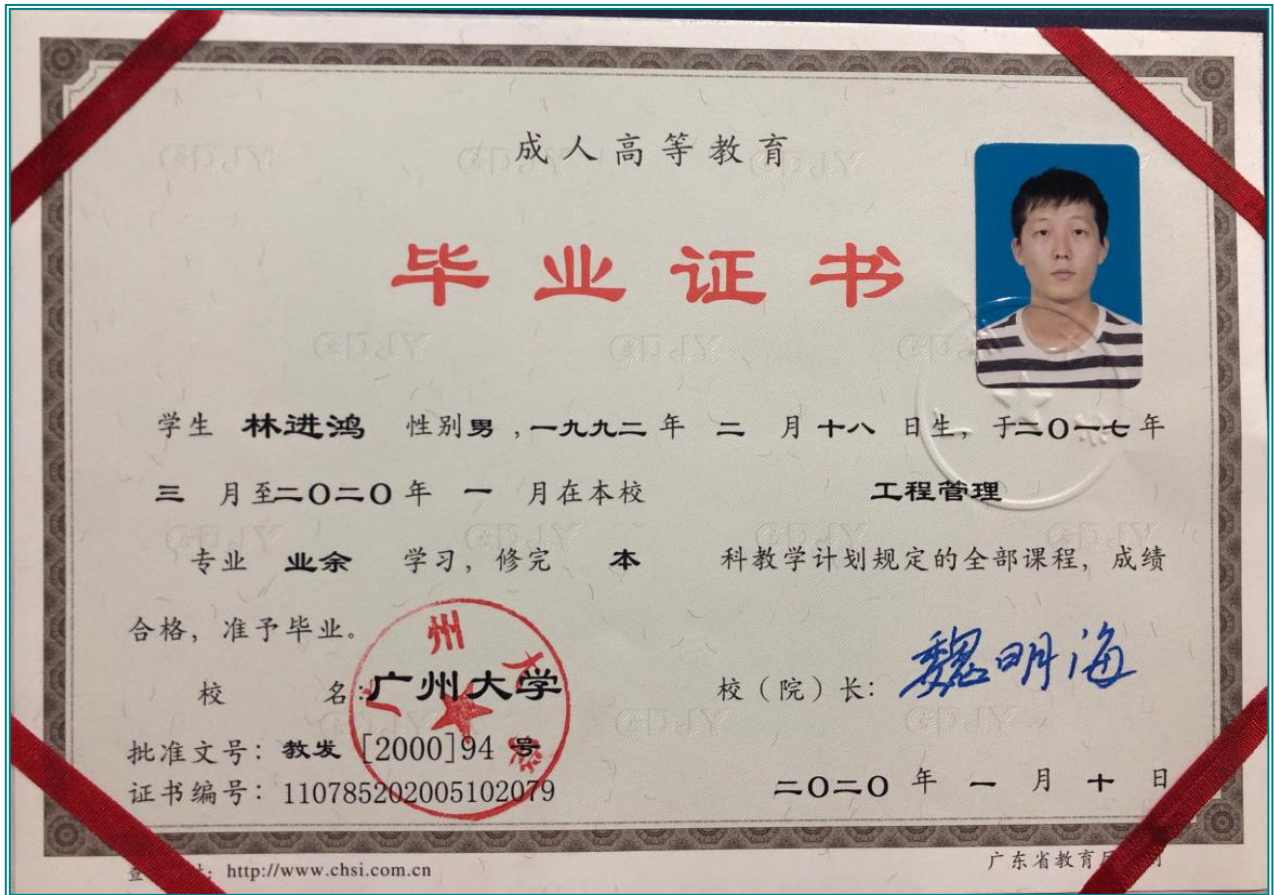 成人高等教育
毕业证书
学生 林进鸿 性别男,一九九二年 二 月十八 日生,于二〇一七年
三 月至二〇二〇年 一 月在本校 工程管理
专业 业余 学习,修完 本 科教学计划规定的全部课程,成绩
合格,准予毕业。
校 名:广州大学 校(院)长:魏明海
批准文号:教发[2000]94 号
证书编号:110785202005102079
二〇二〇 年 一 月 十 日
http://www.chsi.com.cn
广东省教育厅